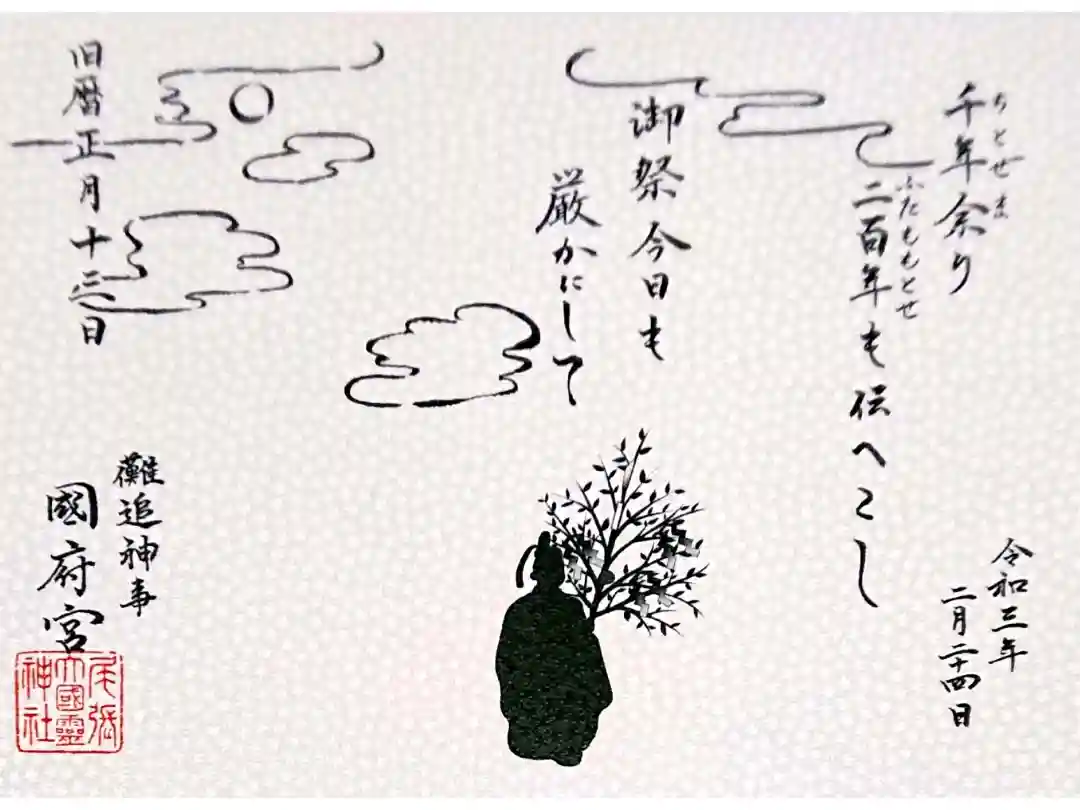 千年余り
ちとせあま
二百年も伝へこし
ふたももとせ
御祭今日も
厳かにして
令和三年
二月二十四日
旧暦正月十三日
難追神事
國府宮
尾張
大國霊
神社